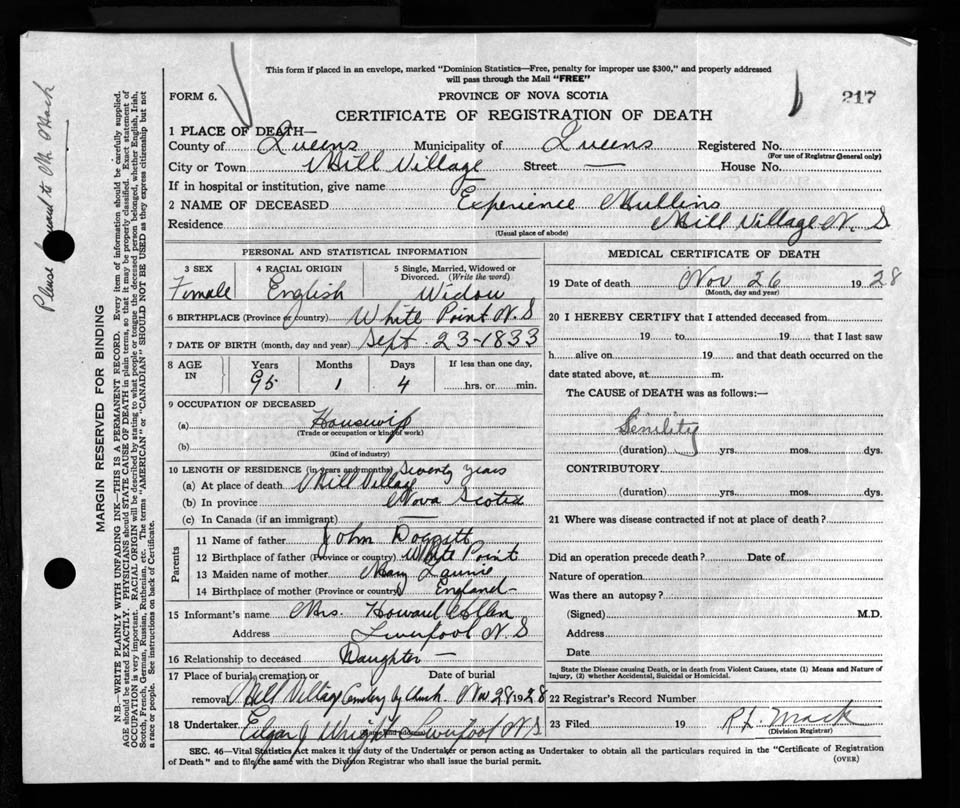 This form if placed in an envelope, marked "Dominion Statistics—Free, penalty for improper use $300," and properly addressed
will pass through the Mail "FREE"
FORM 6.
PROVINCE OF NOVA SCOTIA
217
CERTIFICATE OF REGISTRATION OF DEATH
1 PLACE OF DEATH—
County of Queens Municipality of Queens Registered No.
(For use of Registrar General only)
City or Town Mill Village Street — House No.
If in hospital or institution, give name
2 NAME OF DECEASED Experience Mullins
Residence Mill Village N. S
(Usual place of abode)
PERSONAL AND STATISTICAL INFORMATION
3 SEX 4 RACIAL ORIGIN 5 Single, Married, Widowed or
Divorced. (Write the word)
Female English Widow
6 BIRTHPLACE (Province or country) White Point N.S
7 DATE OF BIRTH (month, day and year) Sept. 23-1833
8 AGE IN Years Months Days If less than one day,
95 1 4 hrs. or min.
9 OCCUPATION OF DECEASED
(a) Housewife
(Trade or occupation or kind of work)
(b)
(Kind of industry)
10 LENGTH OF RESIDENCE (in years and months) Seventy years
(a) At place of death Mill Village
(b) In province Nova Scotia
(c) In Canada (if an immigrant) —
Parents
11 Name of father John Doggett
12 Birthplace of father (Province or country) White Point
13 Maiden name of mother Mary
14 Birthplace of mother (Province or country) England—
15 Informant's name Mrs. Howard
Address Liverpool N.S
16 Relationship to deceased Daughter —
17 Place of burial, cremation or Date of burial
removal Mill Village Cemetery by Church. Nov 28 1928
18 Undertaker Edgar J Wright Liverpool N.S
MEDICAL CERTIFICATE OF DEATH
19 Date of death Nov 26 1928
(Month, day and year)
20 I HEREBY CERTIFY that I attended deceased from
19 to 19 that I last saw
h alive on 19 and that death occurred on the
date stated above, at m.
The CAUSE OF DEATH was as follows:—
Senility
(duration) yrs. mos. dys.
CONTRIBUTORY
(duration) yrs. mos. dys.
21 Where was disease contracted if not at place of death?
Did an operation precede death? Date of
Nature of operation
Was there an autopsy?
(Signed) M.D.
Address
Date
State the Disease causing Death, or in death from Violent Causes, state (1) Means and Nature of
Injury, (2) whether Accidental, Suicidal or Homicidal.
22 Registrar's Record Number
23 Filed 19 R.L. Mack
(Division Registrar)
SEC. 46—Vital Statistics Act makes it the duty of the Undertaker or person acting as Undertaker to obtain all the particulars required in the "Certificate of Registration
of Death" and to file the same with the Division Registrar who shall issue the burial permit.
(OVER)
MARGIN RESERVED FOR BINDING
N.B.—WRITE PLAINLY WITH UNFADING INK.—THIS IS A PERMANENT RECORD. Every item of information should be carefully supplied.
AGE should be stated EXACTLY. PHYSICIANS should STATE CAUSE OF DEATH in plain terms, so that it may be properly classified. Exact statement of
OCCUPATION is very important. RACIAL ORIGIN will be described by stating to what people or tongue the deceased person belonged, whether English, Irish,
Scotch, French, German, Russian, Ruthenian, etc. The terms "AMERICAN" or "CANADIAN" SHOULD NOT BE USED as they express citizenship but not
a race or people. See instructions on back of Certificate.
Please to Mack